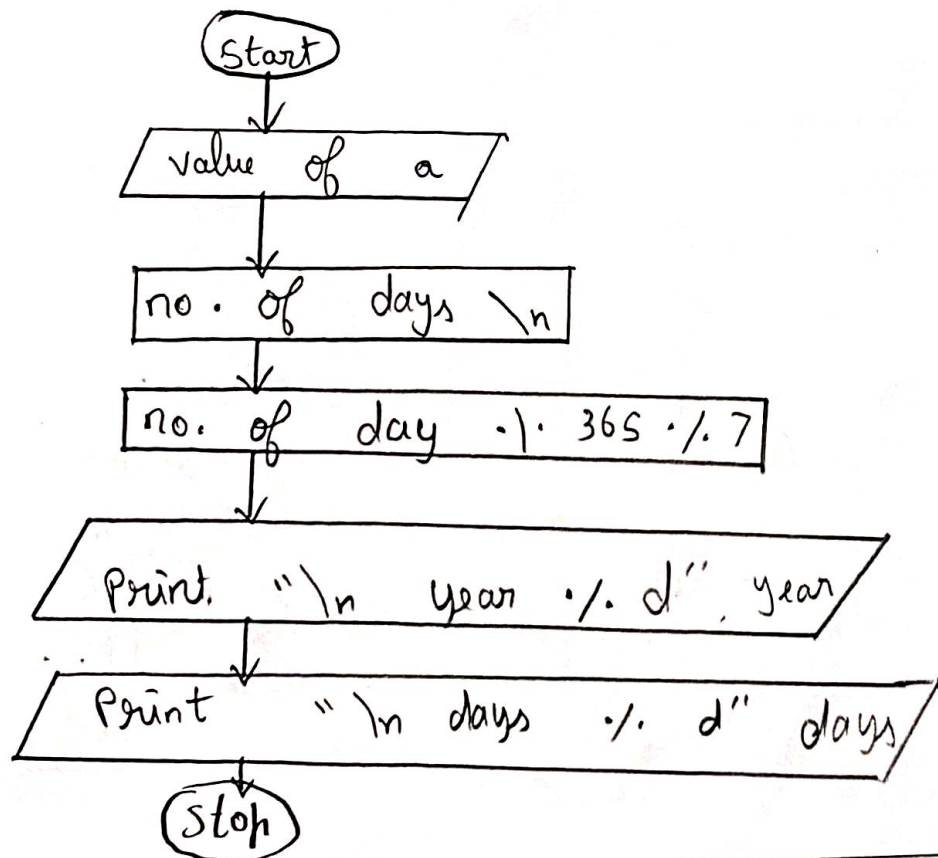 Start
value of a
no. of days \n
no. of day .\. 365 ./. 7
Print. "\n year ./. d" , year
Print "\n days ./. d" days
Stop